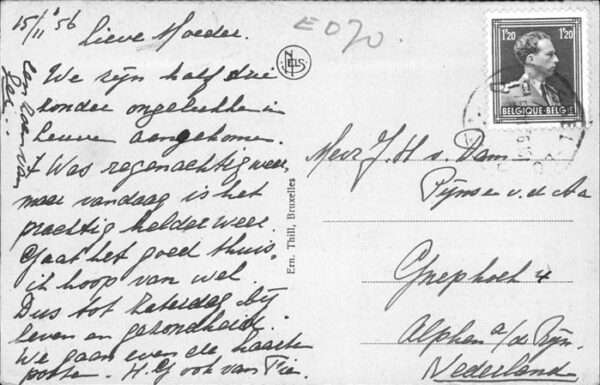 15/11 '56
Lieve Moeder.
We zijn half drie
zonder ongelukken in
Leuven aangekomen.
't Was regenachtig weer,
maar vandaag is het
prachtig helder weer.
Gaat het goed thuis.
ik hoop van wel.
Dus tot Zaterdag bij
leven en gezondheid.
We gaan even de kaart
posten. H.G ook van Fie.
een zoen van
E070.
NELS
Ern. Thill, Bruxelles
1F20 1F20
BELGIQUE-BELGIE
Mevr J. H v. Dam
Pijnse v. d. Aa
Gnephoek 4
Alphen a/d Rijn.
Nederland